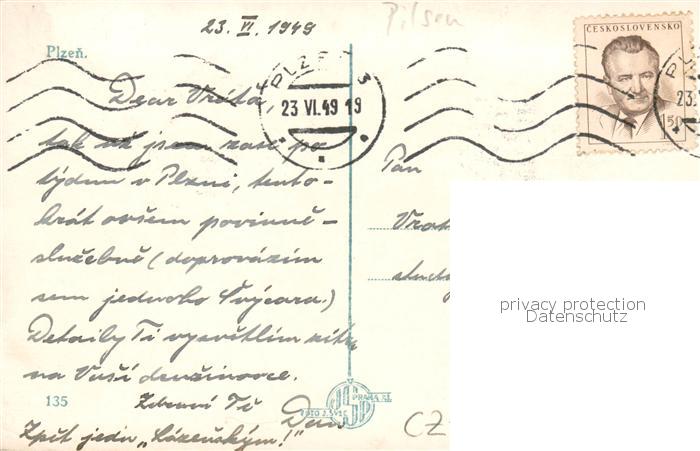 23. VI. 1949
Pilsen
Plzeň.
ČESKOSLOVENSKO
1.50
PLZEŇ 3
23 VI.49 19
Dear Vráťa,
tak už jsem zase po
týdnu v Plzni, tento-
krát ovšem povinně -
služebně (doprovázím
sem jednoho Švýcara.)
Detaily Ti vysvětlím zítra
na Vaší
Zdraví Tě
Dan
Zpět jedu „Lázeňským!"
Pan
Vrat
135
FOTO J. ŠVEC
PRAHA XI.
CZ
privacy protection
Datenschutz